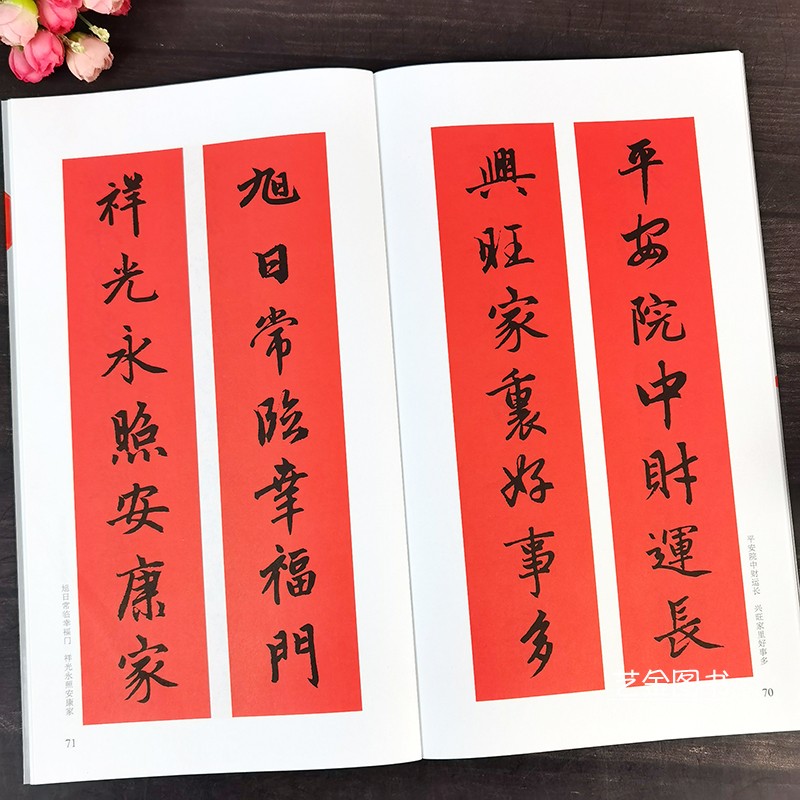 平安院中財運長
興旺家裏好事多
平安院中财运长 兴旺家里好事多
70
旭日常臨幸福門
祥光永照安康家
旭日常临幸福门 祥光永照安康家
71